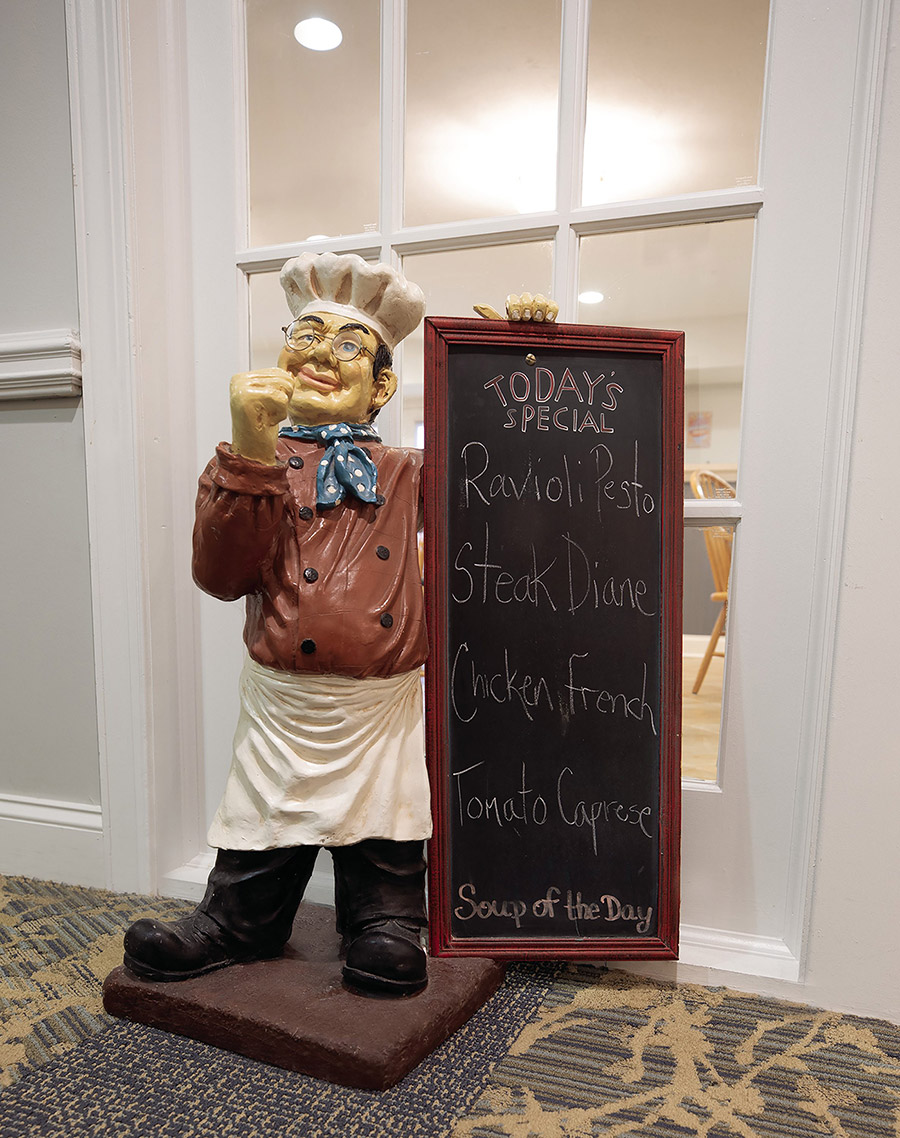 TODAY'S
SPECIAL
Ravioli Pesto
Steak Diane
Chicken French
Tomato Caprese
Soup of the Day